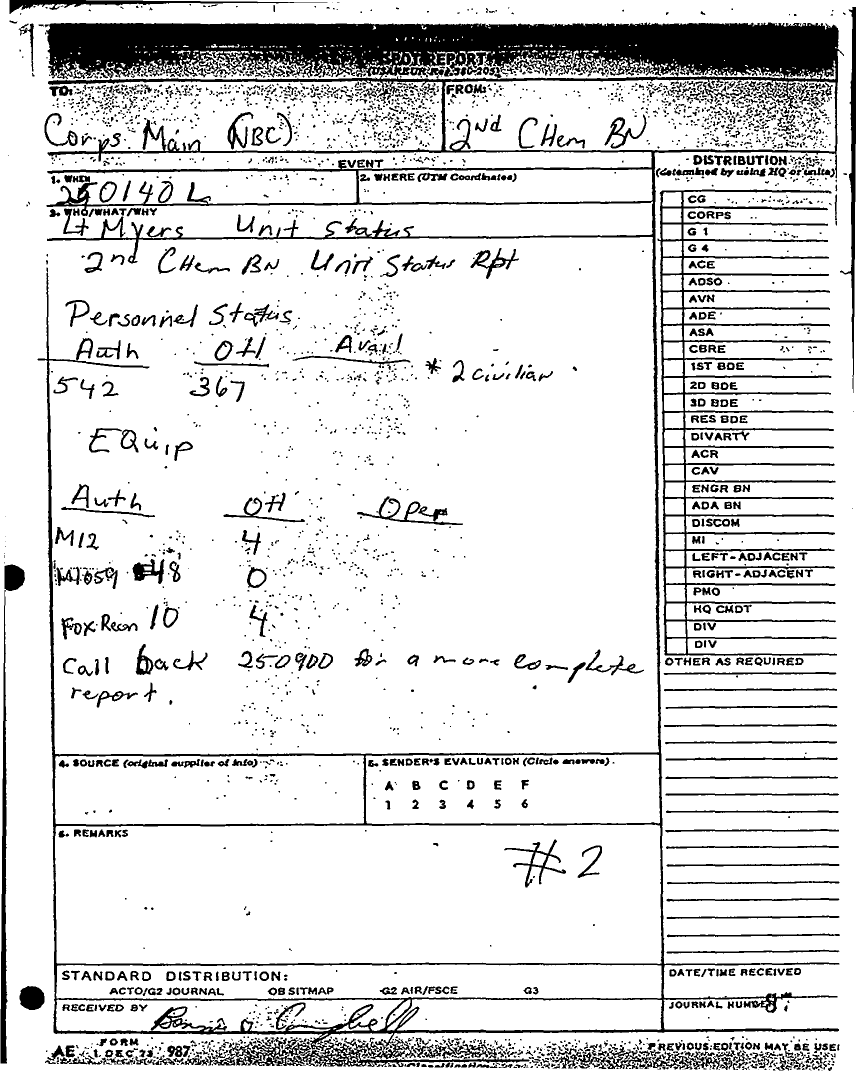 SPOT REPORT
(USAREUR Reg 380-305)
TO: FROM:
Corps Main (NBC) 2nd CHem BN
EVENT
DISTRIBUTION
(determined by using HQ or units)
1. WHEN 2. WHERE (UTM Coordinates)
250140 L
3. WHO/WHAT/WHY
Lt Myers Unit Status
2nd CHem BN Unit Status Rpt
Personnel Status
Auth OH Avail
542 367 * 2 civilian
EQuip
Auth OH Oper
M12 4
M1059 48 0
Fox Recon 10 4
Call back 250900 for a more complete
report.
CG
CORPS
G 1
G 4
ACE
ADSO
AVN
ADE
ASA
CBRE
1ST BDE
2D BDE
3D BDE
RES BDE
DIVARTY
ACR
CAV
ENGR BN
ADA BN
DISCOM
MI
LEFT-ADJACENT
RIGHT-ADJACENT
PMO
HQ CMDT
DIV
DIV
OTHER AS REQUIRED
4. SOURCE (original supplier of info) 5. SENDER'S EVALUATION (Circle answers)
A B C D E F
1 2 3 4 5 6
6. REMARKS
#2
STANDARD DISTRIBUTION:
ACTO/G2 JOURNAL OB SITMAP G2 AIR/FSCE G3
DATE/TIME RECEIVED
RECEIVED BY Campbell
JOURNAL NUMBER 87
AE FORM 1 DEC 73 987 PREVIOUS EDITION MAY BE USE
Classification